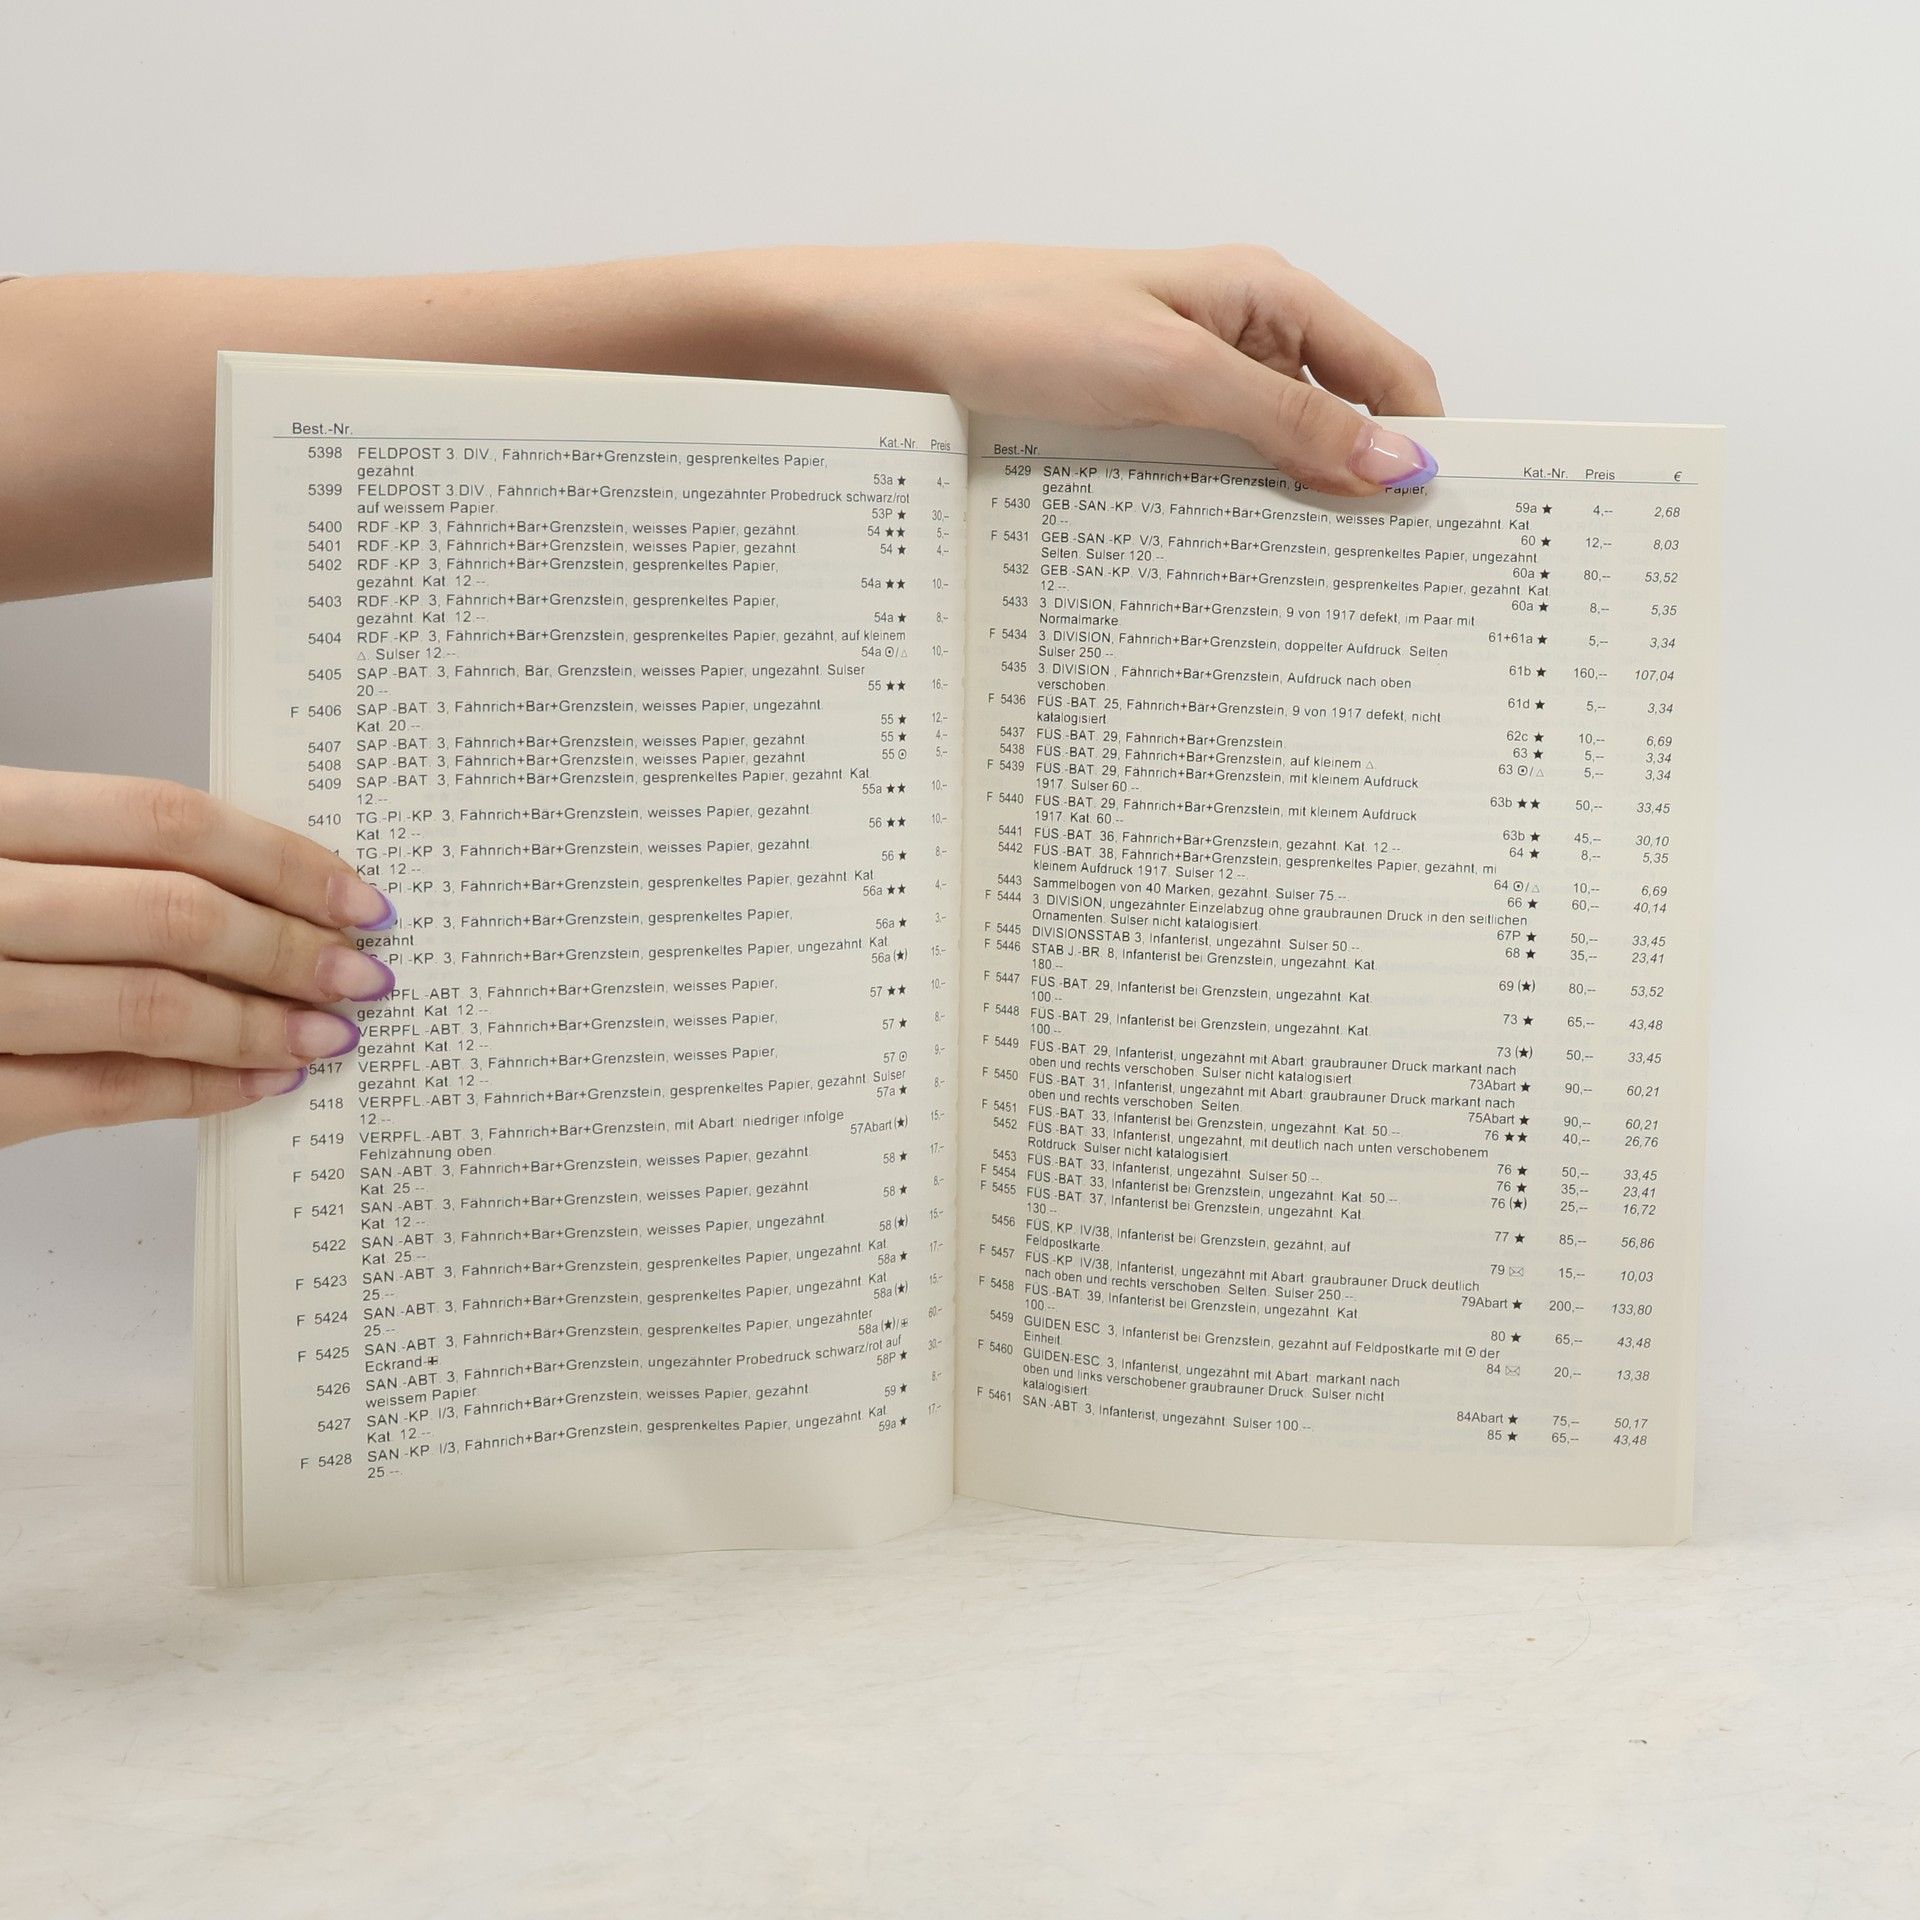 Best.-Nr. Kat.-Nr. Preis
5398 FELDPOST 3. DIV., Fähnrich+Bär+Grenzstein, gesprenkeltes Papier,
gezähnt. 53a ★ 4,-
5399 FELDPOST 3.DIV., Fähnrich+Bär+Grenzstein, ungezähnter Probedruck schwarz/rot
auf weissem Papier. 53P ★ 30,-
5400 RDF.-KP. 3, Fähnrich+Bär+Grenzstein, weisses Papier, gezähnt. 54 ★★ 5,-
5401 RDF.-KP. 3, Fähnrich+Bär+Grenzstein, weisses Papier, gezähnt. 54 ★ 4,-
5402 RDF.-KP. 3, Fähnrich+Bär+Grenzstein, gesprenkeltes Papier,
gezähnt. Kat. 12.--. 54a ★★ 10,-
5403 RDF.-KP. 3, Fähnrich+Bär+Grenzstein, gesprenkeltes Papier,
gezähnt. Kat. 12.--. 54a ★ 8,-
5404 RDF.-KP. 3, Fähnrich+Bär+Grenzstein, gesprenkeltes Papier, gezähnt, auf kleinem
△. Sulser 12.--. 54a ⊙/△ 10,-
5405 SAP.-BAT. 3, Fähnrich, Bär, Grenzstein, weisses Papier, ungezähnt. Sulser
20.--. 55 ★★ 16,-
F 5406 SAP.-BAT. 3, Fähnrich+Bär+Grenzstein, weisses Papier, ungezähnt.
Kat. 20.--. 55 ★ 12,-
5407 SAP.-BAT. 3, Fähnrich+Bär+Grenzstein, weisses Papier, gezähnt. 55 ★ 4,-
5408 SAP.-BAT. 3, Fähnrich+Bär+Grenzstein, weisses Papier, gezähnt. 55 ⊙ 5,-
5409 SAP.-BAT. 3, Fähnrich+Bär+Grenzstein, gesprenkeltes Papier, gezähnt. Kat.
12.--. 55a ★★ 10,-
5410 TG.-PI.-KP. 3, Fähnrich+Bär+Grenzstein, weisses Papier, gezähnt.
Kat. 12.--. 56 ★★ 10,-
TG.-PI.-KP. 3, Fähnrich+Bär+Grenzstein, weisses Papier, gezähnt.
Kat. 12.--. 56 ★ 8,-
-PI.-KP. 3, Fähnrich+Bär+Grenzstein, gesprenkeltes Papier, gezähnt. Kat.
56a ★★ 4,-
PI.-KP. 3, Fähnrich+Bär+Grenzstein, gesprenkeltes Papier,
gezähnt. 56a ★ 3,-
-PI.-KP. 3, Fähnrich+Bär+Grenzstein, gesprenkeltes Papier, ungezähnt. Kat.
56a (★) 15,-
RPFL.-ABT. 3, Fähnrich+Bär+Grenzstein, weisses Papier,
gezähnt. Kat. 12.--. 57 ★★ 10,-
VERPFL.-ABT. 3, Fähnrich+Bär+Grenzstein, weisses Papier,
gezähnt. Kat. 12.--. 57 ★ 8,-
5417 VERPFL.-ABT. 3, Fähnrich+Bär+Grenzstein, weisses Papier,
gezähnt. Kat. 12.--. 57 ⊙ 9,-
5418 VERPFL.-ABT. 3, Fähnrich+Bär+Grenzstein, gesprenkeltes Papier, gezähnt. Sulser
12.--. 57a ★ 8,-
F 5419 VERPFL.-ABT. 3, Fähnrich+Bär+Grenzstein, mit Abart: niedriger infolge
Fehlzähnung oben. 57Abart (★) 15,-
F 5420 SAN.-ABT. 3, Fähnrich+Bär+Grenzstein, weisses Papier, gezähnt.
Kat. 25.--. 58 ★ 17,-
F 5421 SAN.-ABT. 3, Fähnrich+Bär+Grenzstein, weisses Papier, gezähnt.
Kat. 12.--. 58 ★ 8,-
5422 SAN.-ABT. 3, Fähnrich+Bär+Grenzstein, weisses Papier, ungezähnt.
Kat. 25.--. 58 (★) 15,-
F 5423 SAN.-ABT. 3, Fähnrich+Bär+Grenzstein, gesprenkeltes Papier, ungezähnt. Kat.
25.--. 58a ★ 17,-
F 5424 SAN.-ABT. 3, Fähnrich+Bär+Grenzstein, gesprenkeltes Papier, ungezähnt. Kat.
25.--. 58a (★) 15,-
F 5425 SAN.-ABT. 3, Fähnrich+Bär+Grenzstein, gesprenkeltes Papier, ungezähnter
Eckrand-⊞. 58a (★)/⊞ 60,-
5426 SAN.-ABT. 3, Fähnrich+Bär+Grenzstein, ungezähnter Probedruck schwarz/rot auf
weissem Papier. 58P ★ 30,-
5427 SAN.-KP. I/3, Fähnrich+Bär+Grenzstein, weisses Papier, gezähnt.
Kat. 12.--. 59 ★ 8,-
F 5428 SAN.-KP. I/3, Fähnrich+Bär+Grenzstein, gesprenkeltes Papier, ungezähnt. Kat.
25.--. 59a ★ 17,-
Best.-Nr. Kat.-Nr. Preis €
5429 SAN.-KP. I/3, Fähnrich+Bär+Grenzstein, Papier,
gezähnt. 59a ★ 4,-- 2,68
F 5430 GEB.-SAN.-KP. V/3, Fähnrich+Bär+Grenzstein, weisses Papier, ungezähnt. Kat.
20.--. 60 ★ 12,-- 8,03
F 5431 GEB.-SAN.-KP. V/3, Fähnrich+Bär+Grenzstein, gesprenkeltes Papier, ungezähnt.
Selten. Sulser 120.--. 60a ★ 80,-- 53,52
5432 GEB.-SAN.-KP. V/3, Fähnrich+Bär+Grenzstein, gesprenkeltes Papier, gezähnt. Kat.
12.--. 60a ★ 8,-- 5,35
5433 3. DIVISION, Fähnrich+Bär+Grenzstein, 9 von 1917 defekt, im Paar mit
Normalmarke. 61+61a ★ 5,-- 3,34
F 5434 3. DIVISION, Fähnrich+Bär+Grenzstein, doppelter Aufdruck. Selten
Sulser 250.--. 61b ★ 160,-- 107,04
5435 3. DIVISION, Fähnrich+Bär+Grenzstein, Aufdruck nach oben
verschoben. 61d ★ 5,-- 3,34
F 5436 FÜS.-BAT. 25, Fähnrich+Bär+Grenzstein, 9 von 1917 defekt, nicht
katalogisiert. 62c ★ 10,-- 6,69
5437 FÜS.-BAT. 29, Fähnrich+Bär+Grenzstein. 63 ★ 5,-- 3,34
5438 FÜS.-BAT. 29, Fähnrich+Bär+Grenzstein, auf kleinem △ 63 ⊙/△ 5,-- 3,34
F 5439 FÜS.-BAT. 29, Fähnrich+Bär+Grenzstein, mit kleinem Aufdruck
1917. Sulser 60.--. 63b ★★ 50,-- 33,45
F 5440 FÜS.-BAT. 29, Fähnrich+Bär+Grenzstein, mit kleinem Aufdruck
1917. Kat. 60.--. 63b ★ 45,-- 30,10
5441 FÜS.-BAT. 36, Fähnrich+Bär+Grenzstein, gezähnt. Kat. 12.--. 64 ★ 8,-- 5,35
5442 FÜS.-BAT. 38, Fähnrich+Bär+Grenzstein, gesprenkeltes Papier, gezähnt, mi
kleinem Aufdruck 1917. Sulser 12.--. 64 ⊙/△ 10,-- 6,69
5443 Sammelbogen von 40 Marken, gezähnt. Sulser 75.--. 66 ★ 60,-- 40,14
F 5444 3. DIVISION, ungezähnter Einzelabzug ohne graubraunen Druck in den seitlichen
Ornamenten. Sulser nicht katalogisiert. 67P ★ 50,-- 33,45
F 5445 DIVISIONSSTAB 3, Infanterist, ungezähnt. Sulser 50.--. 68 ★ 35,-- 23,41
F 5446 STAB J.-BR. 8, Infanterist bei Grenzstein, ungezähnt. Kat.
180.--. 69 (★) 80,-- 53,52
F 5447 FÜS.-BAT. 29, Infanterist bei Grenzstein, ungezähnt. Kat.
100.--. 73 ★ 65,-- 43,48
F 5448 FÜS.-BAT. 29, Infanterist bei Grenzstein, ungezähnt. Kat.
100.--. 73 (★) 50,-- 33,45
F 5449 FÜS.-BAT. 29, Infanterist, ungezähnt mit Abart: graubrauner Druck markant nach
oben und rechts verschoben. Sulser nicht katalogisiert. 73Abart ★ 90,-- 60,21
F 5450 FÜS.-BAT. 31, Infanterist, ungezähnt mit Abart: graubrauner Druck markant nach
oben und rechts verschoben. Selten. 75Abart ★ 90,-- 60,21
F 5451 FÜS.-BAT. 33, Infanterist bei Grenzstein, ungezähnt. Kat. 50.--. 76 ★★ 40,-- 26,76
5452 FÜS.-BAT. 33, Infanterist, ungezähnt, mit deutlich nach unten verschobenem
Rotdruck. Sulser nicht katalogisiert. 76 ★ 50,-- 33,45
5453 FÜS.-BAT. 33, Infanterist, ungezähnt. Sulser 50.--. 76 ★ 35,-- 23,41
F 5454 FÜS.-BAT. 33, Infanterist bei Grenzstein, ungezähnt. Kat. 50.--. 76 (★) 25,-- 16,72
F 5455 FÜS.-BAT. 37, Infanterist bei Grenzstein, ungezähnt. Kat.
130.--. 77 ★ 85,-- 56,86
5456 FÜS, KP. IV/38, Infanterist bei Grenzstein, gezähnt, auf
Feldpostkarte. 79 ✉ 15,-- 10,03
F 5457 FÜS.-KP. IV/38, Infanterist, ungezähnt mit Abart: graubrauner Druck deutlich
nach oben und rechts verschoben. Selten. Sulser 250.--. 79Abart ★ 200,-- 133,80
F 5458 FÜS.-BAT. 39, Infanterist bei Grenzstein, ungezähnt. Kat.
100.--. 80 ★ 65,-- 43,48
5459 GUIDEN ESC. 3, Infanterist bei Grenzstein, gezähnt auf Feldpostkarte mit ⊙ der
Einheit. 84 ✉ 20,-- 13,38
F 5460 GUIDEN-ESC. 3, Infanterist, ungezähnt mit Abart: markant nach
oben und links verschobener graubrauner Druck. Sulser nicht
katalogisiert. 84Abart ★ 75,-- 50,17
F 5461 SAN.-ABT. 3, Infanterist, ungezähnt. Sulser 100.--. 85 ★ 65,-- 43,48